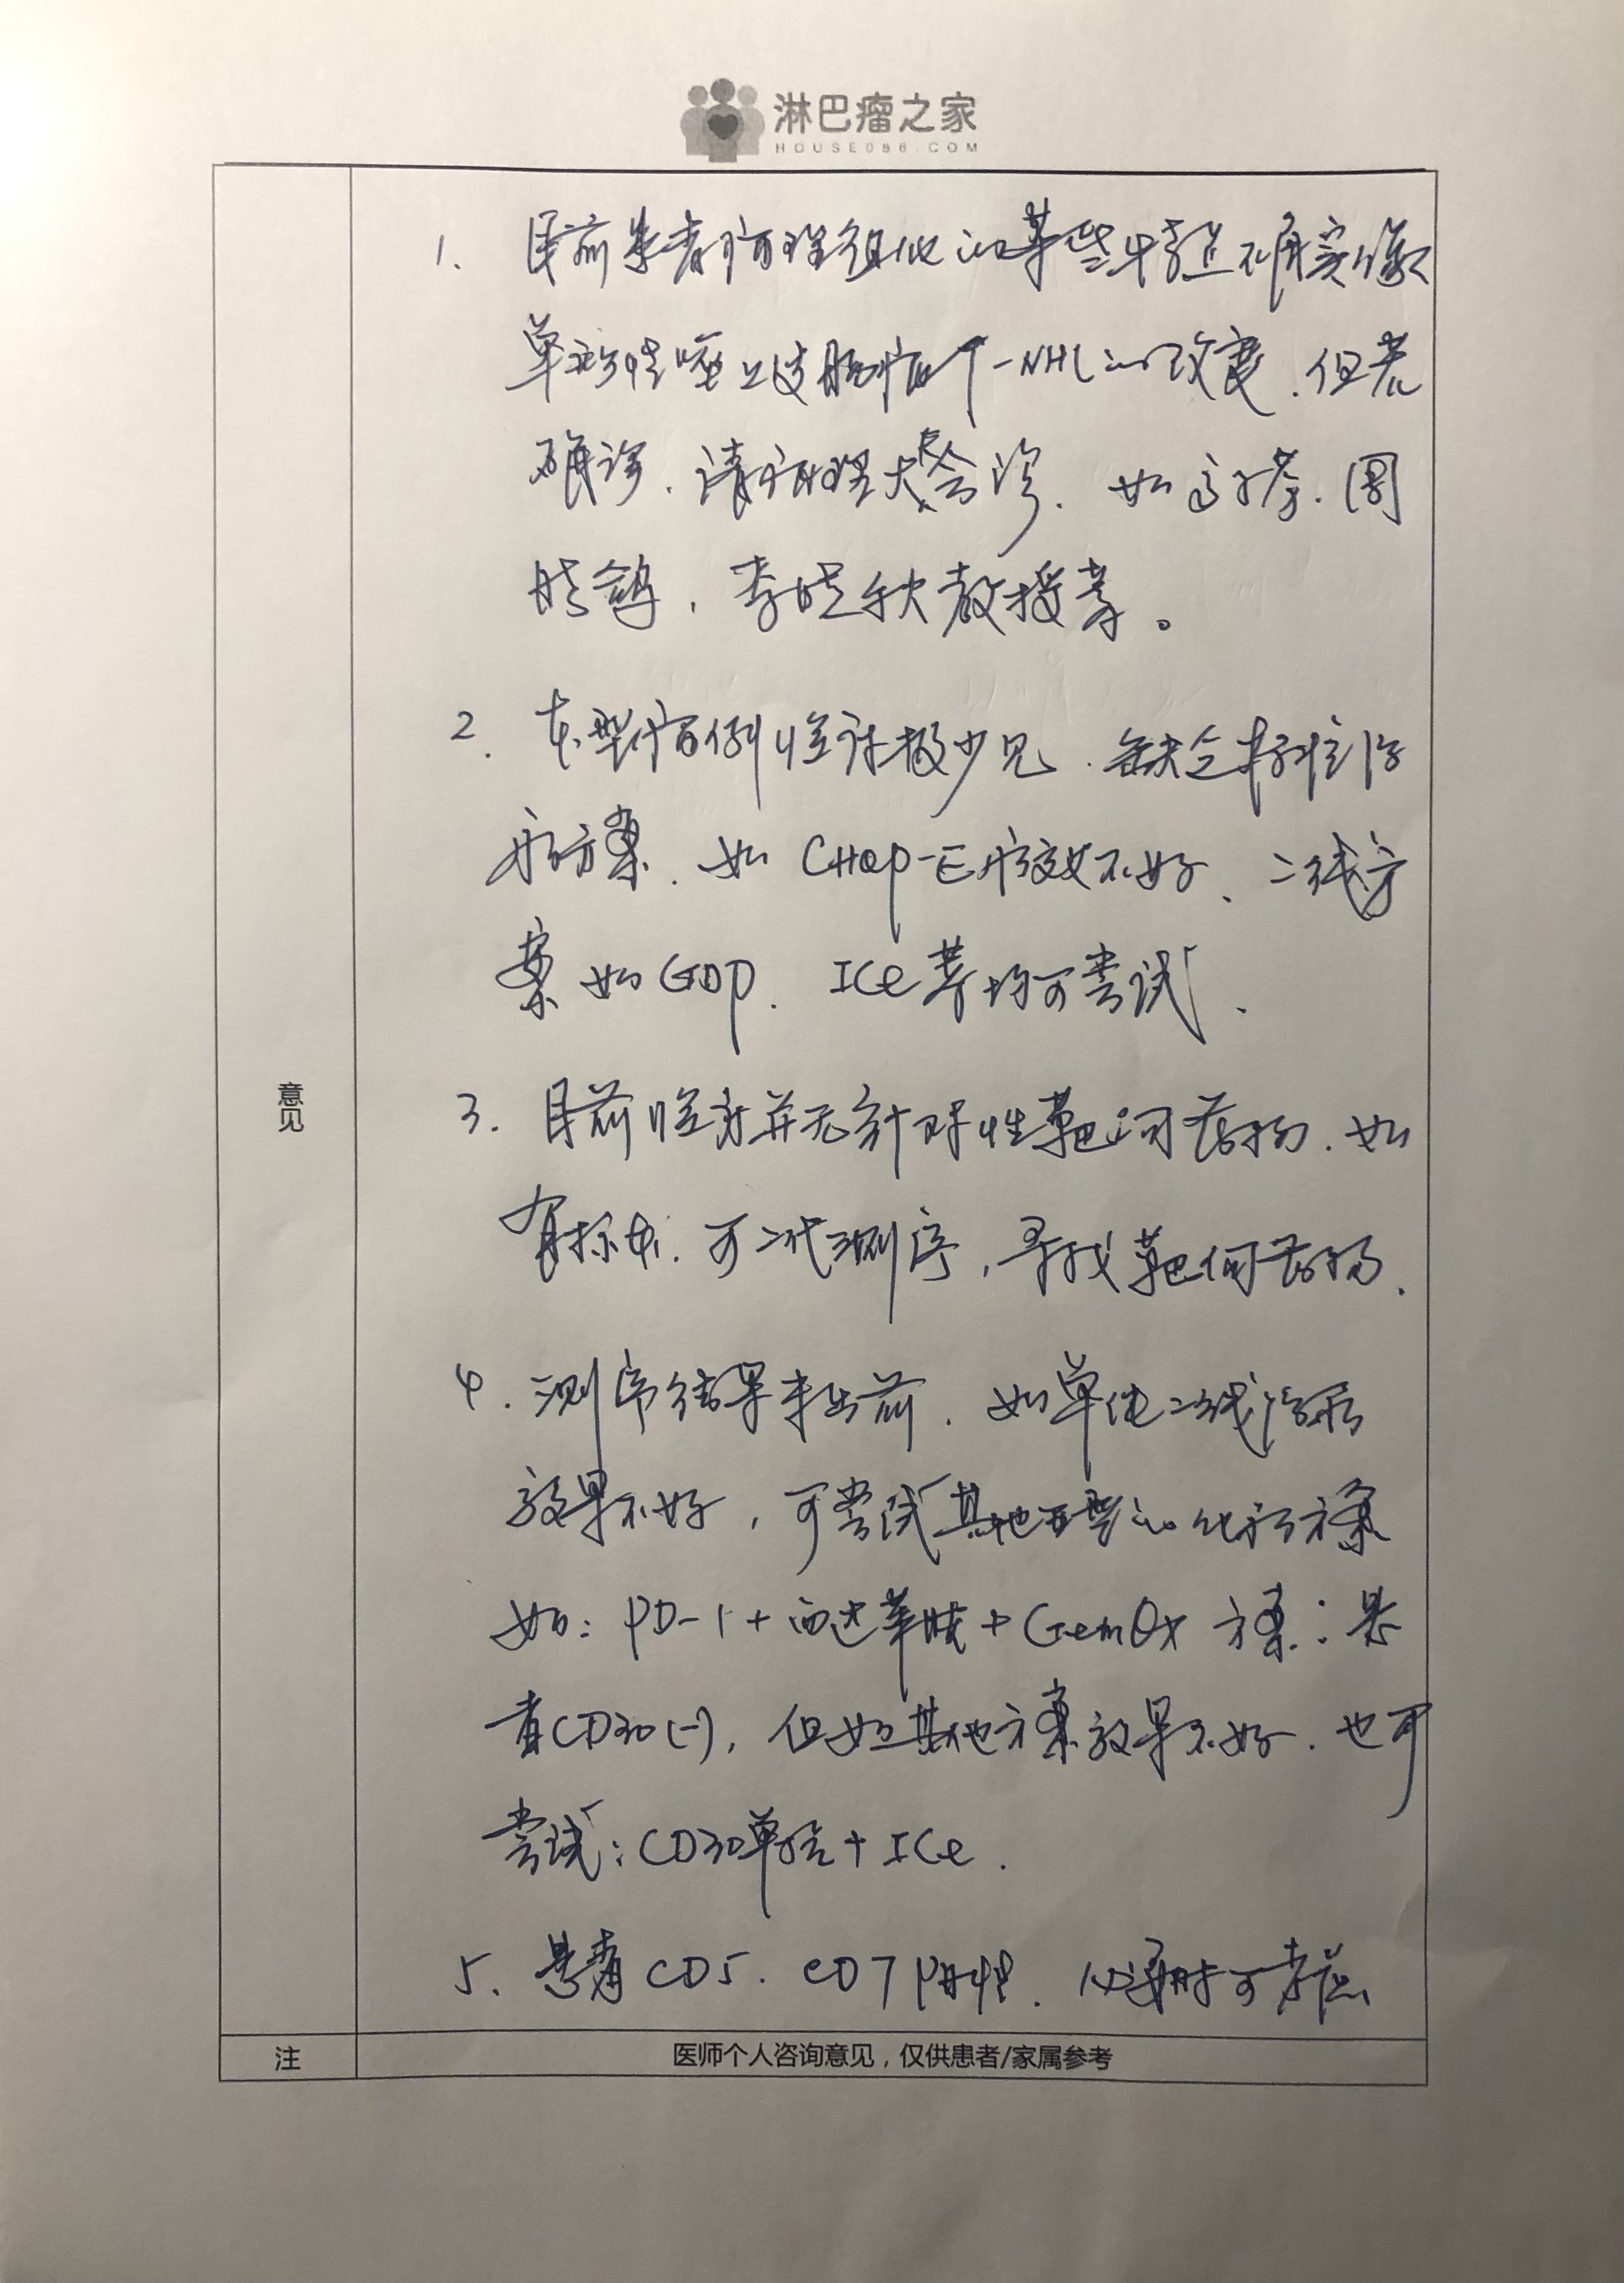 淋巴瘤之家
HOUSE086.COM
1. 目前患者病理组化的某些特点确实像
单形性嗜上皮肠病T-NHL的改变, 但若
确诊, 请病理大会诊. 如高子芬. 周
晓鸽, 李挺秋教授等。
2. 本型病例临床极少见. 缺乏标准治
疗方案. 如 CHOP-E疗效不好、二线方
案如GDP. ICE等均可尝试.
3. 目前临床并无针对性靶向药物. 如
有标本. 可二代测序, 寻找靶向药物.
4. 测序结果未出前. 如单纯二线治疗
效果不好, 可尝试其他亚型的化疗方案
如: PD-1+西达苯胺+GemOx 方案; 患
者CD30(-), 但如其他方案效果不好. 也可
尝试: CD30单抗+ICE.
5. 患者CD5. CD7阳性. 必要时可考虑
意见
注
医师个人咨询意见，仅供患者/家属参考